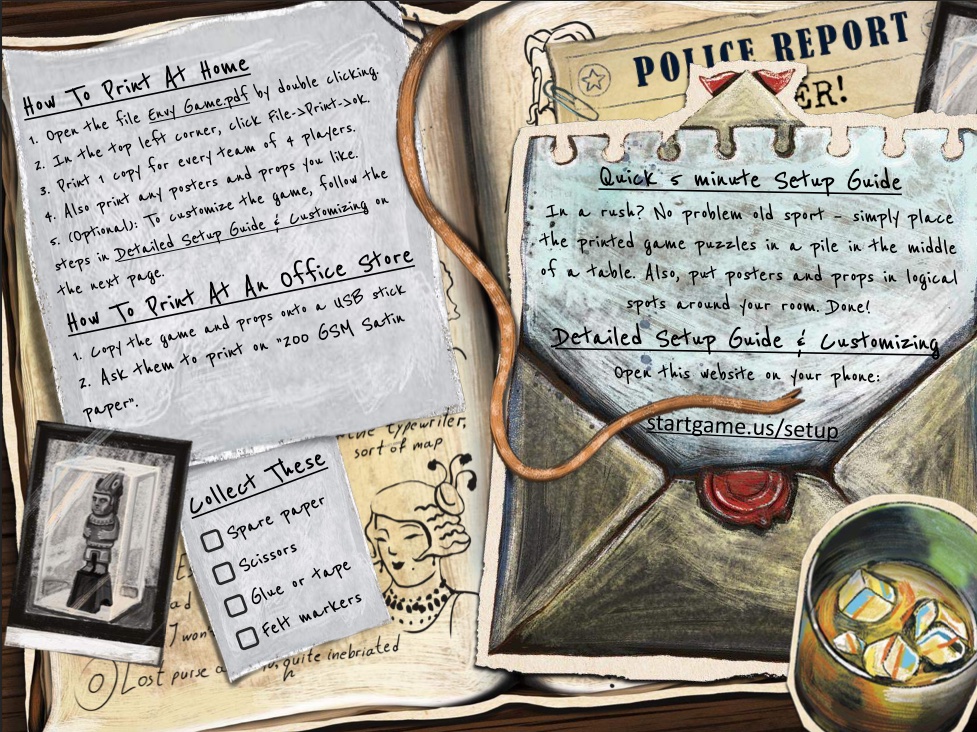 How To Print At Home
1. Open the file Envy Game.pdf by double clicking.
2. In the top left corner, click File->Print->ok.
3. Print 1 copy for every team of 4 players.
4. Also print any posters and props you like.
5. (Optional): To customize the game, follow the
steps in Detailed Setup Guide & Customizing on
the next page.
How To Print At An Office Store
1. Copy the game and props onto a USB stick
2. Ask them to print on "200 GSM Satin
paper".
the typewriter,
sort of map
Collect These
Spare paper
Scissors
Glue or tape
Felt markers
Lost purse
quite inebriated
POLICE REPORT
ER!
Quick 5 minute Setup Guide
In a rush? No problem old sport - simply place
the printed game puzzles in a pile in the middle
of a table. Also, put posters and props in logical
spots around your room. Done!
Detailed Setup Guide & Customizing
Open this website on your phone:
startgame.us/setup